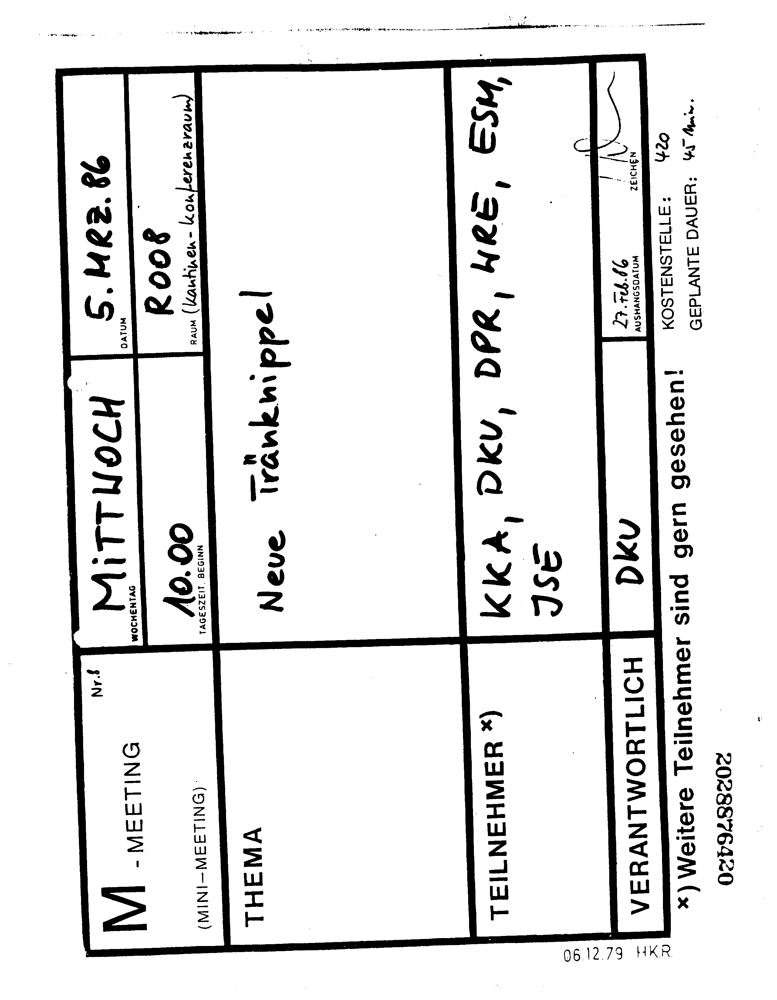 M - MEETING Nr. 8
(MINI-MEETING)
MiTTWOCH
WOCHENTAG
5. MRZ. 86
DATUM
10.00
TAGESZEIT, BEGINN
R008
RAUM (Kantinen-Konferenzraum)
THEMA
Neue Tränknippel
TEILNEHMER *)
KKA, DKU, DPR, WRE, ESM,
JSE
VERANTWORTLICH
DKU
27. Feb. 86
AUSHANGSDATUM
ZEICHEN
*) Weitere Teilnehmer sind gern gesehen!
KOSTENSTELLE: 420
GEPLANTE DAUER: 45 Min.
06.12.79 HKR
2028876420